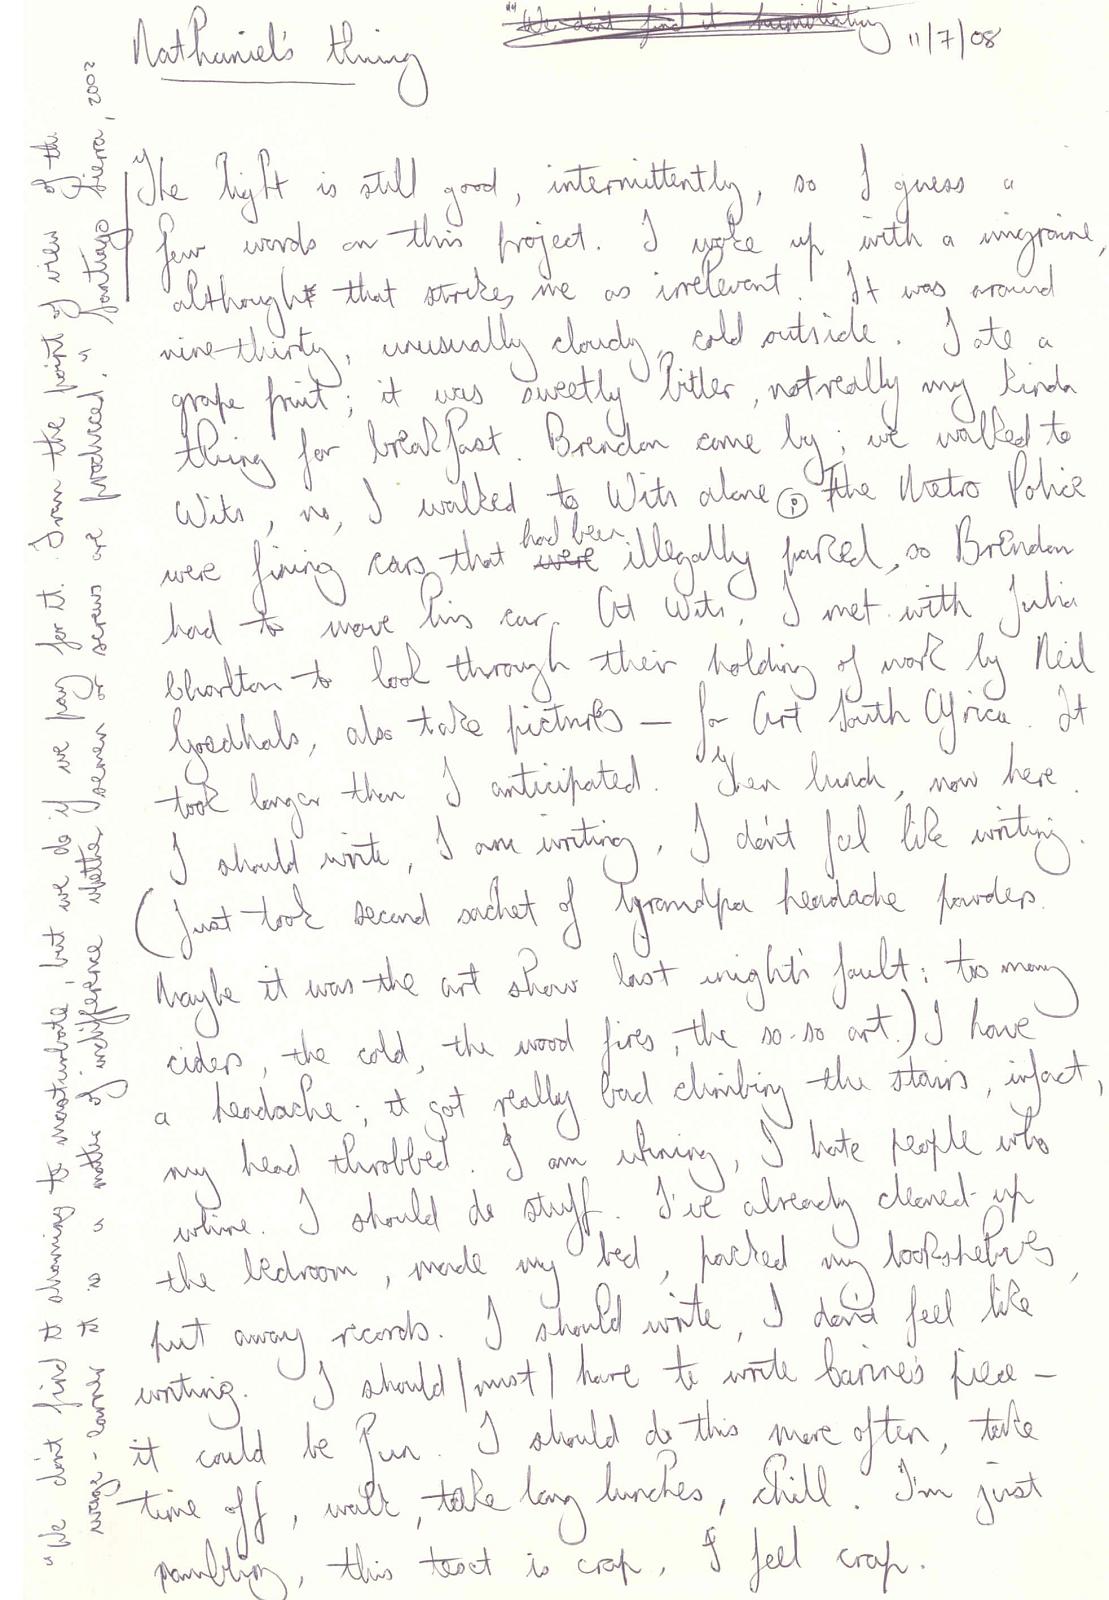 "We don't find it humiliating
Nathaniel's thing
11/7/08
The light is still good, intermittently, so I guess a
few words on this project. I woke up with a migraine,
although that strikes me as irrelevant. It was around
nine-thirty, unusually cloudy, cold outside. I ate a
grape fruit; it was sweetly bitter, not really my kinda
thing for breakfast. Brendan came by; we walked to
Wits, no, I walked to Wits alone. The Metro Police
were fining cars that were had been illegally parked, so Brendan
had to move his car. At Wits, I met with Julia
Charlton to look through their holding of work by Neil
Goedhals, also take pictures — for Art South Africa. It
took longer than I anticipated. Then lunch, now here.
I should write, I am writing, I don't feel like writing.
(Just took second sachet of Grandpa headache powders.
Maybe it was the art show last night's fault: too many
ciders, the cold, the wood fires, the so-so art.) I have
a headache; it got really bad climbing the stairs, infact,
my head throbbed. I am whining, I hate people who
whine. I should do stuff. I've already cleaned-up
the bedroom, made my bed, packed my bookshelves,
put away records. I should write, I don't feel like
writing. I should/must/have to write Carine's piece –
it could be fun. I should do this more often, take
time off, walk, take long lunches, chill. I'm just
rambling, this text is crap, I feel crap.
"We don't find it shaming to masturbate, but we do if we pay for it. From the point of view of the
wage-earner it is a matter of indifference whether semen or screws are produced." Santiago Sierra, 2002